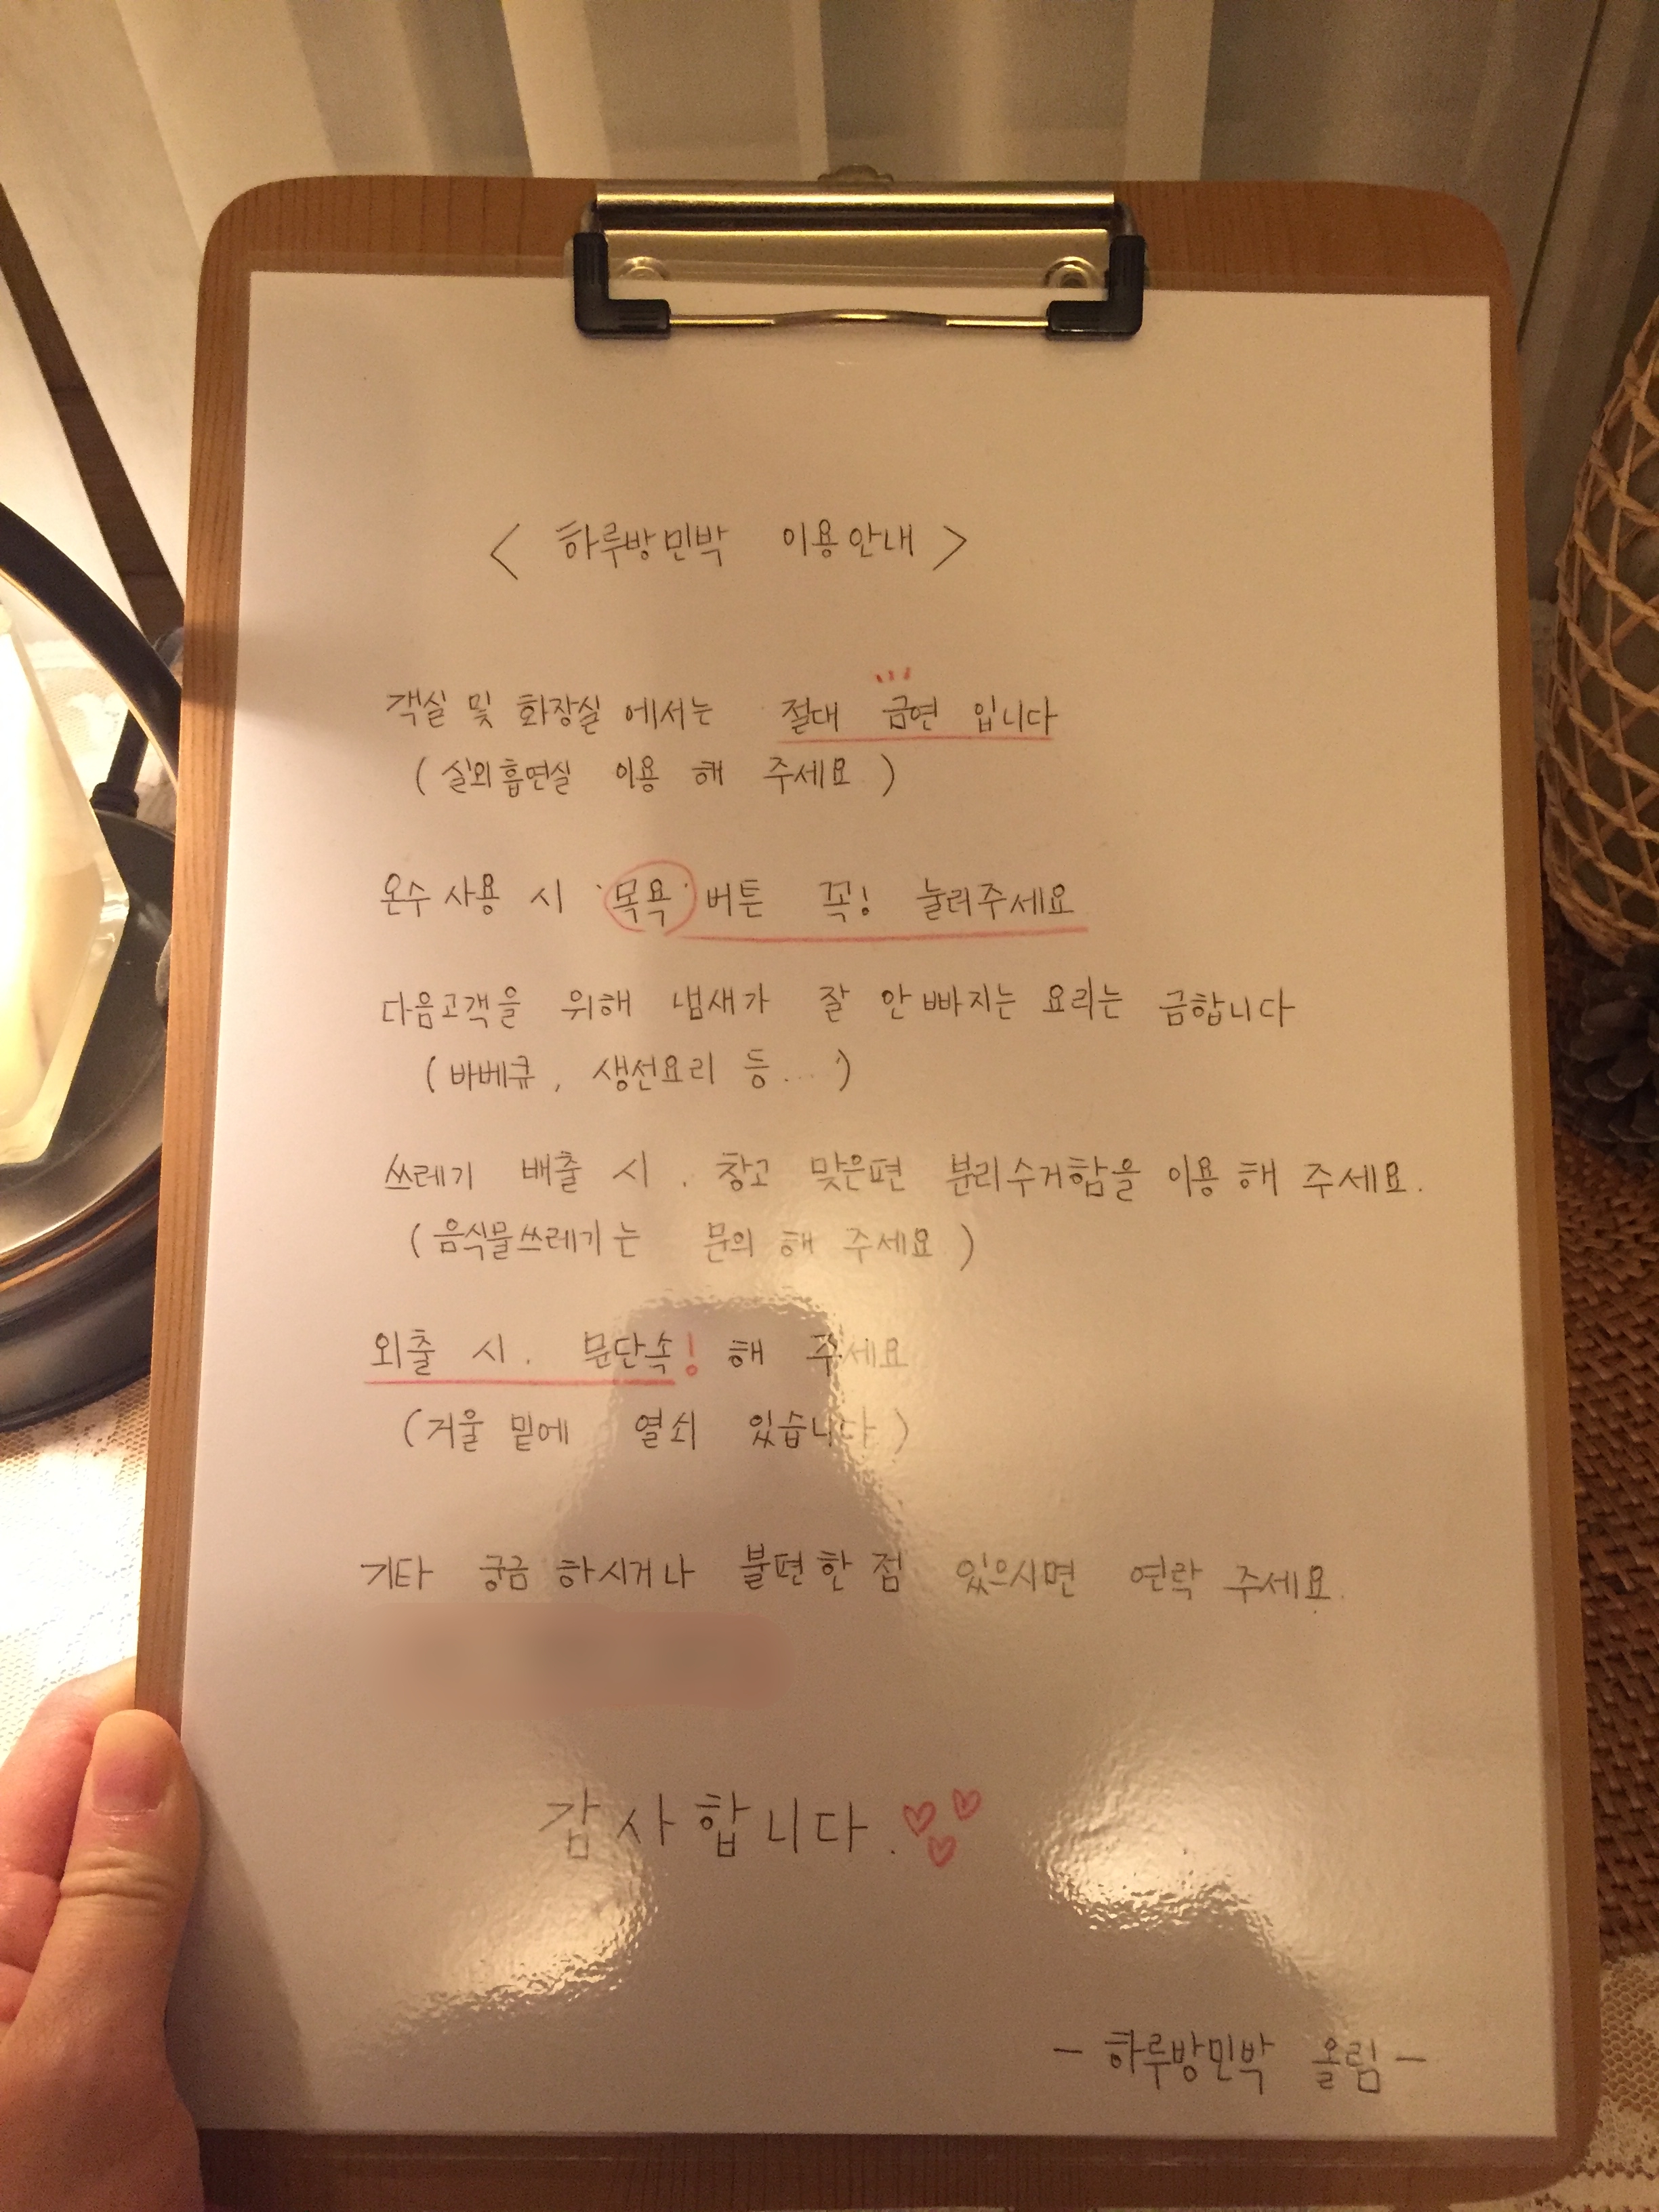 < 하루방민박 이용안내 >
객실 및 화장실 에서는 절대 금연 입니다
( 실외흡연실 이용 해 주세요 )
온수 사용 시 '목욕' 버튼 꼭! 눌러주세요
다음고객을 위해 냄새가 잘 안빠지는 요리는 금합니다
( 바베큐, 생선요리 등... )
쓰레기 배출 시, 창고 맞은편 분리수거함을 이용 해 주세요.
( 음식물쓰레기는 문의 해 주세요 )
외출 시, 문단속! 해 주세요
( 거울 밑에 열쇠 있습니다 )
기타 궁금 하시거나 불편한 점 있으시면 연락 주세요.
감사합니다.
- 하루방민박 올림 -